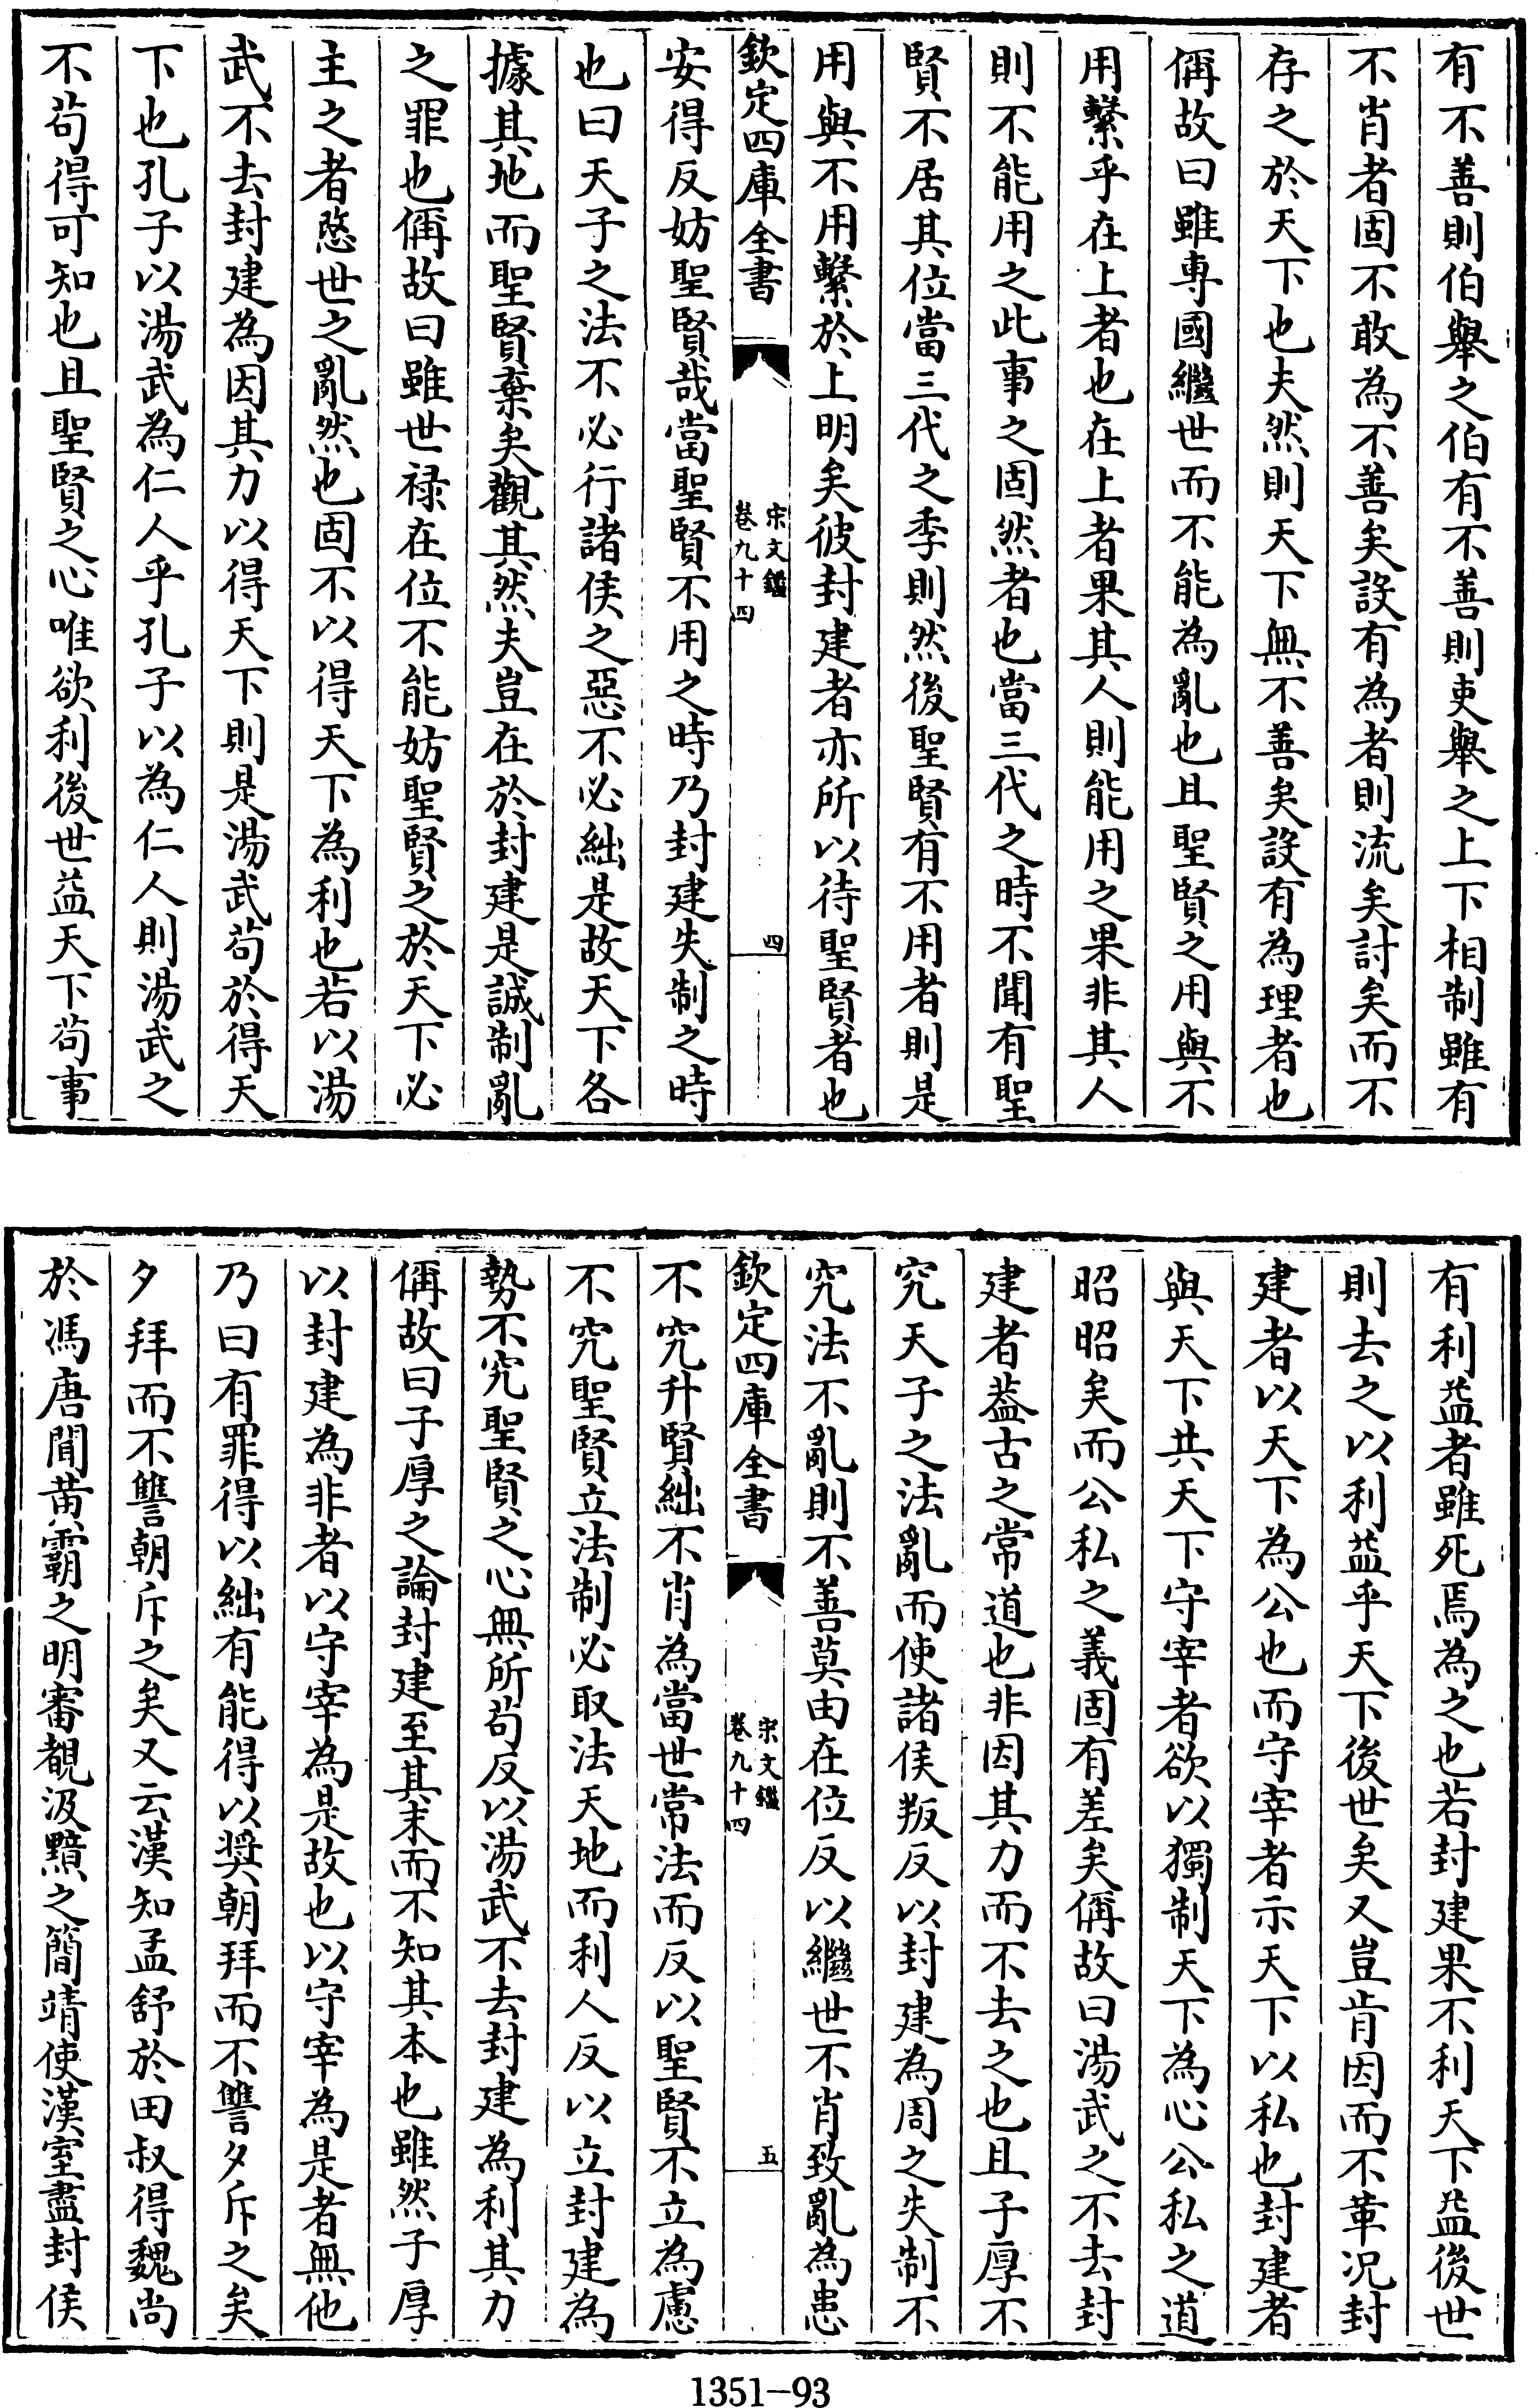 有不善則伯舉之伯有不善則吏舉之上下相制雖有
不肖者固不敢為不善矣設有為者則流矣討矣而不
存之於天下也夫然則天下無不善矣設有為理者也
偁故曰雖專國繼世而不能為亂也且聖賢之用與不
用繫乎在上者也在上者果其人則能用之果非其人
則不能用之此事之固然者也當三代之時不聞有聖
賢不居其位當三代之季則然後聖賢有不用者則是
用與不用繫於上明矣彼封建者亦所以待聖賢者也
欽定四庫全書
宋文鑑
卷九十四
四
安得反妨聖賢哉當聖賢不用之時乃封建失制之時
也曰天子之法不必行諸侯之惡不必絀是故天下各
據其地而聖賢棄矣觀其然夫豈在於封建是誠制亂
之罪也偁故曰雖世禄在位不能妨聖賢之於天下必
主之者愍世之亂然也固不以得天下為利也若以湯
武不去封建為因其力以得天下則是湯武苟於得天
下也孔子以湯武為仁人乎孔子以為仁人則湯武之
不苟得可知也且聖賢之心唯欲利後世益天下苟事
有利益者雖死焉為之也若封建果不利天下益後世
則去之以利益乎天下後世矣又豈肯因而不革况封
建者以天下為公也而守宰者示天下以私也封建者
與天下共天下守宰者欲以獨制天下為心公私之道
昭昭矣而公私之義固有差矣偁故曰湯武之不去封
建者葢古之常道也非因其力而不去之也且子厚不
究天子之法亂而使諸侯叛反以封建為周之失制不
究法不亂則不善莫由在位反以繼世不肖致亂為患
欽定四庫全書
宋文鑑
卷九十四
五
不究升賢絀不肖為當世常法而反以聖賢不立為慮
不究聖賢立法制必取法天地而利人反以立封建為
勢不究聖賢之心無所苟反以湯武不去封建為利其力
偁故曰子厚之論封建至其末而不知其本也雖然子厚
以封建為非者以守宰為是故也以守宰為是者無他
乃曰有罪得以絀有能得以奬朝拜而不讐夕斥之矣
夕拜而不讐朝斥之矣又云漢知孟舒於田叔得魏尚
於馮唐聞黄霸之明審覩汲黯之簡靖使漢室盡封侯
1351-93